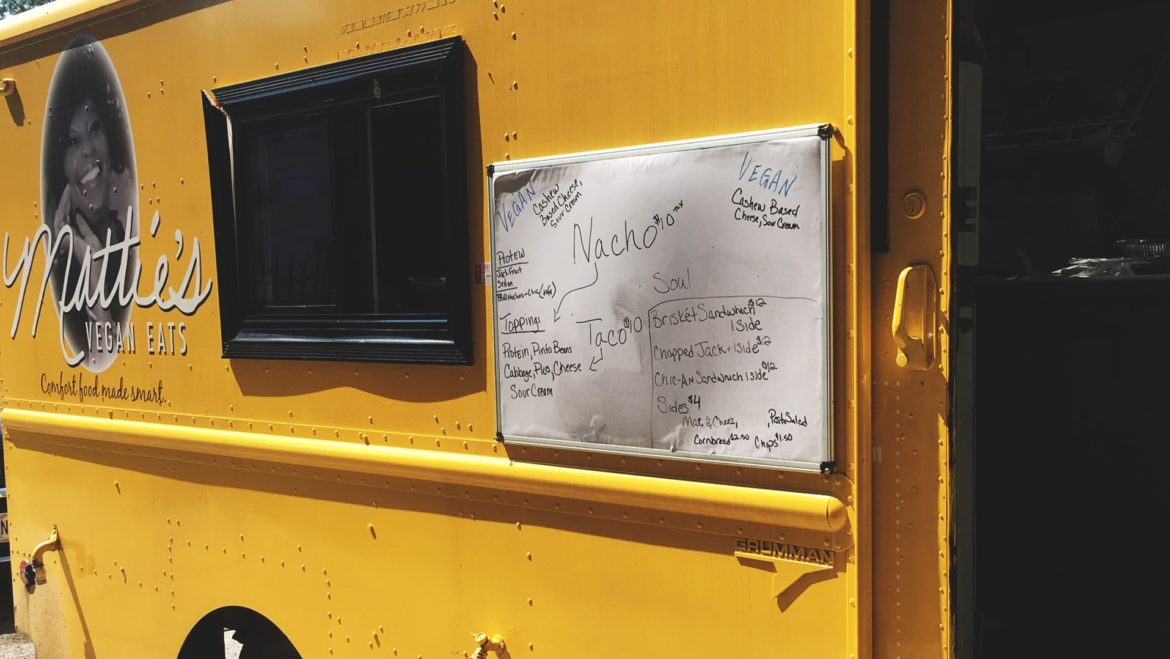 Mattie's
VEGAN EATS
Comfort food made smart.
VEGAN
Cashew
Based Cheese,
Sour Cream
Nacho $10 +tax
VEGAN
Cashew Based
Cheese, Sour Cream
Protein
Jack Fruit
Seitan
Toppings
Protein, Pinto Beans
Cabbage, Pico, Cheese
Sour Cream
Taco $10
Soul
Brisket Sandwhich $12
1 Side
Chopped Jack + 1Side $12
Chic-An Sandwhich 1 Side $12
Sides $4
Mac & Cheez, , Pasta Salad
Cornbread $2.50 Chips $1.50
GRUMMAN